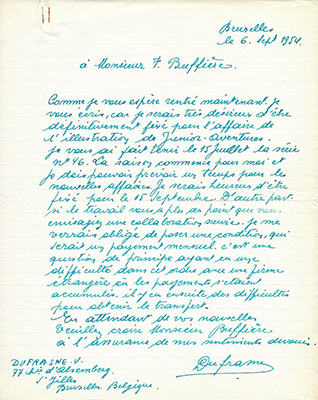 Bruxelles
le 6. Sept 1954.
à Monsieur F. Buffière.
Comme je vous espère rentré maintenant, je
vous écris, car je serais très désireux d'être
définitivement fixé pour l'affaire de
l'illustration de Junior-Aventures.
Je vous ai fait tenir le 15 juillet la série
n° 46. La saison commence pour moi et
je dois pouvoir prévoir un temps pour les
nouvelles affaires. Je serais heureux d'être
fixé pour le 15 septembre. D'autre part
si le travail vous a plu au point que vous
envisagiez une collaboration suivie, je me
verrais obligé de poser une condition, qui
serait un payement mensuel. c'est une
question de principe ayant eu une
difficulté dans cet ordre avec une firme
étrangère où les payements s'étaient
accumulés. il y eu ensuite des difficultés
pour obtenir le transfert.
En attendant de vos nouvelles
Veuillez croire Monsieur Buffière
à l'assurance de mes sentiments dévoués.
DUFRASNE. V.
77 d'Alsemberg.
St Gilles
Bruxelles. Belgique.
Dufrasne